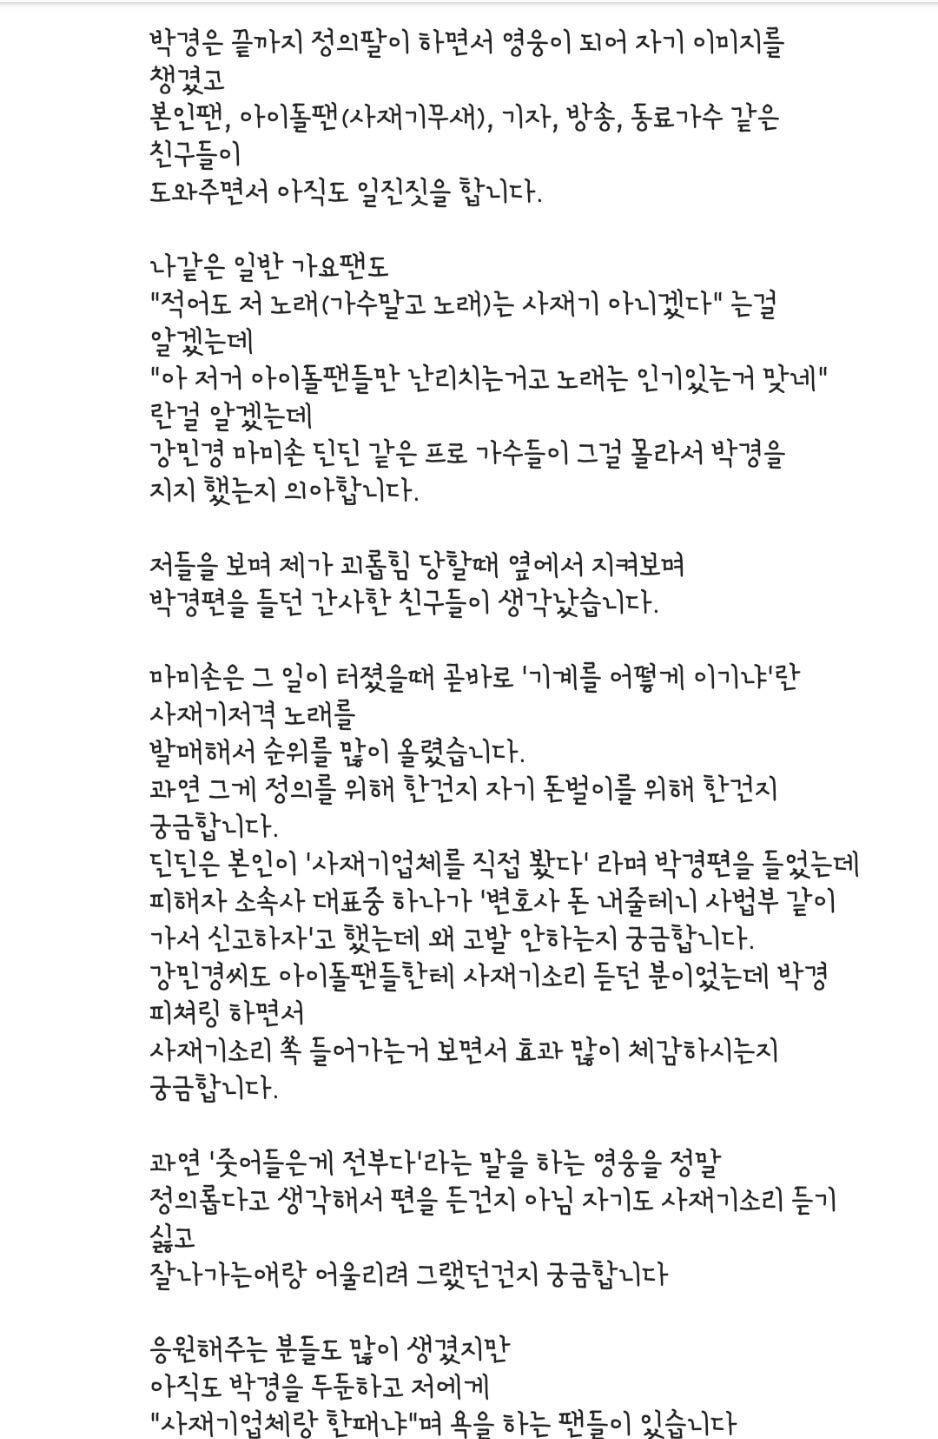 박경은 끝까지 정의팔이 하면서 영웅이 되어 자기 이미지를
챙겼고
본인팬, 아이돌팬(사재기무새), 기자, 방송, 동료가수 같은
친구들이
도와주면서 아직도 일진짓을 합니다.
나같은 일반 가요팬도
"적어도 저 노래(가수말고 노래)는 사재기 아니겠다" 는걸
알겠는데
"아 저거 아이돌팬들만 난리치는거고 노래는 인기있는거 맞네"
란걸 알겠는데
강민경 마미손 딘딘 같은 프로 가수들이 그걸 몰라서 박경을
지지 했는지 의아합니다.
저들을 보며 제가 괴롭힘 당할때 옆에서 지켜보며
박경편을 들던 간사한 친구들이 생각났습니다.
마미손은 그 일이 터졌을때 곧바로 '기계를 어떻게 이기냐'란
사재기저격 노래를
발매해서 순위를 많이 올렸습니다.
과연 그게 정의를 위해 한건지 자기 돈벌이를 위해 한건지
궁금합니다.
딘딘은 본인이 '사재기업체를 직접 봤다' 라며 박경편을 들었는데
피해자 소속사 대표중 하나가 '변호사 돈 내줄테니 사법부 같이
가서 신고하자'고 했는데 왜 고발 안하는지 궁금합니다.
강민경씨도 아이돌팬들한테 사재기소리 듣던 분이었는데 박경
피쳐링 하면서
사재기소리 쏙 들어가는거 보면서 효과 많이 체감하시는지
궁금합니다.
과연 '줏어들은게 전부다'라는 말을 하는 영웅을 정말
정의롭다고 생각해서 편을 든건지 아님 자기도 사재기소리 듣기
싫고
잘나가는애랑 어울리려 그랬던건지 궁금합니다
응원해주는 분들도 많이 생겼지만
아직도 박경을 두둔하고 저에게
"사재기업체랑 한패냐"며 욕을 하는 팬들이 있습니다